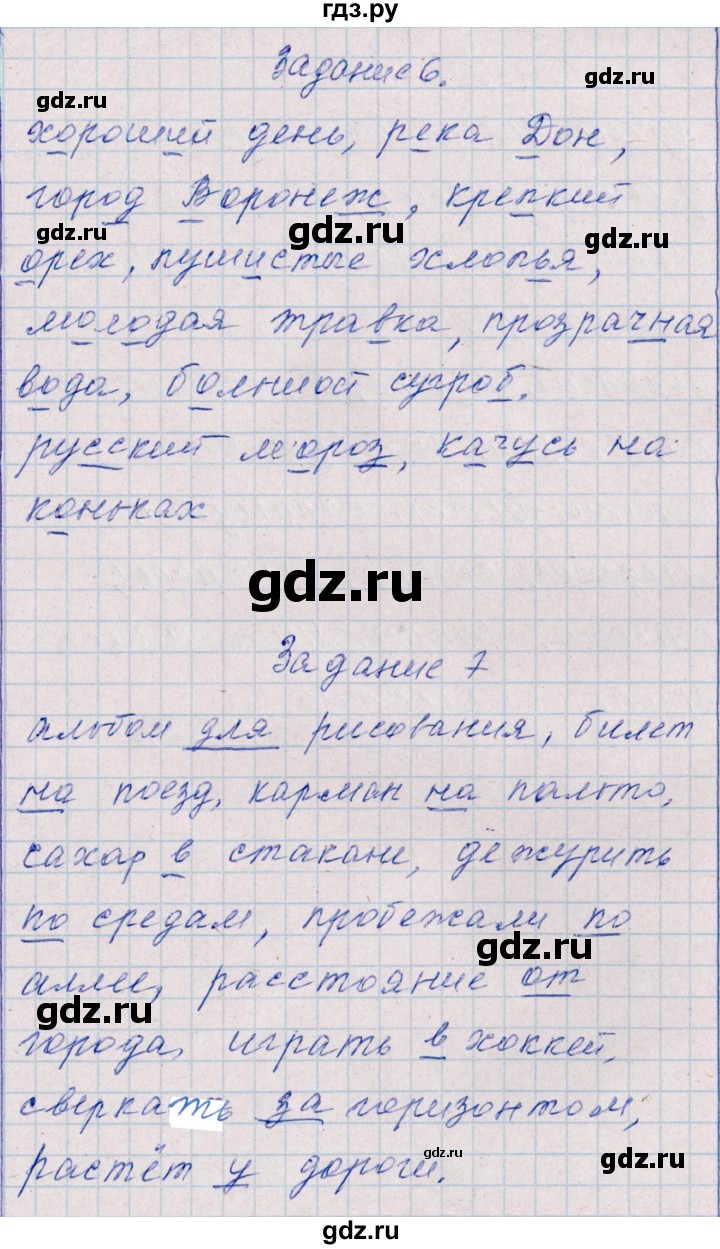 гдз.ру
Задание 6.
gdz.ru
gdz.ru
хороший день, река Дон,
город Воронеж, крепкий
gdz.ru
gdz.ru
орех, пушистые хлопья,
молодая травка, прозрачная
вода, большой сугроб,
русский мороз, качусь на
коньках
gdz.ru
Задание 7
альбом для рисования, билет
на поезд, карман на пальто,
сахар в стакане, дежурить
по средам, пробежали по
gdz.ru
аллее, расстояние от
gdz.ru
города, играть в хоккей,
сверкать за горизонтом,
растёт у дороги.
gdz.ru
gdz.ru
gdz.ru